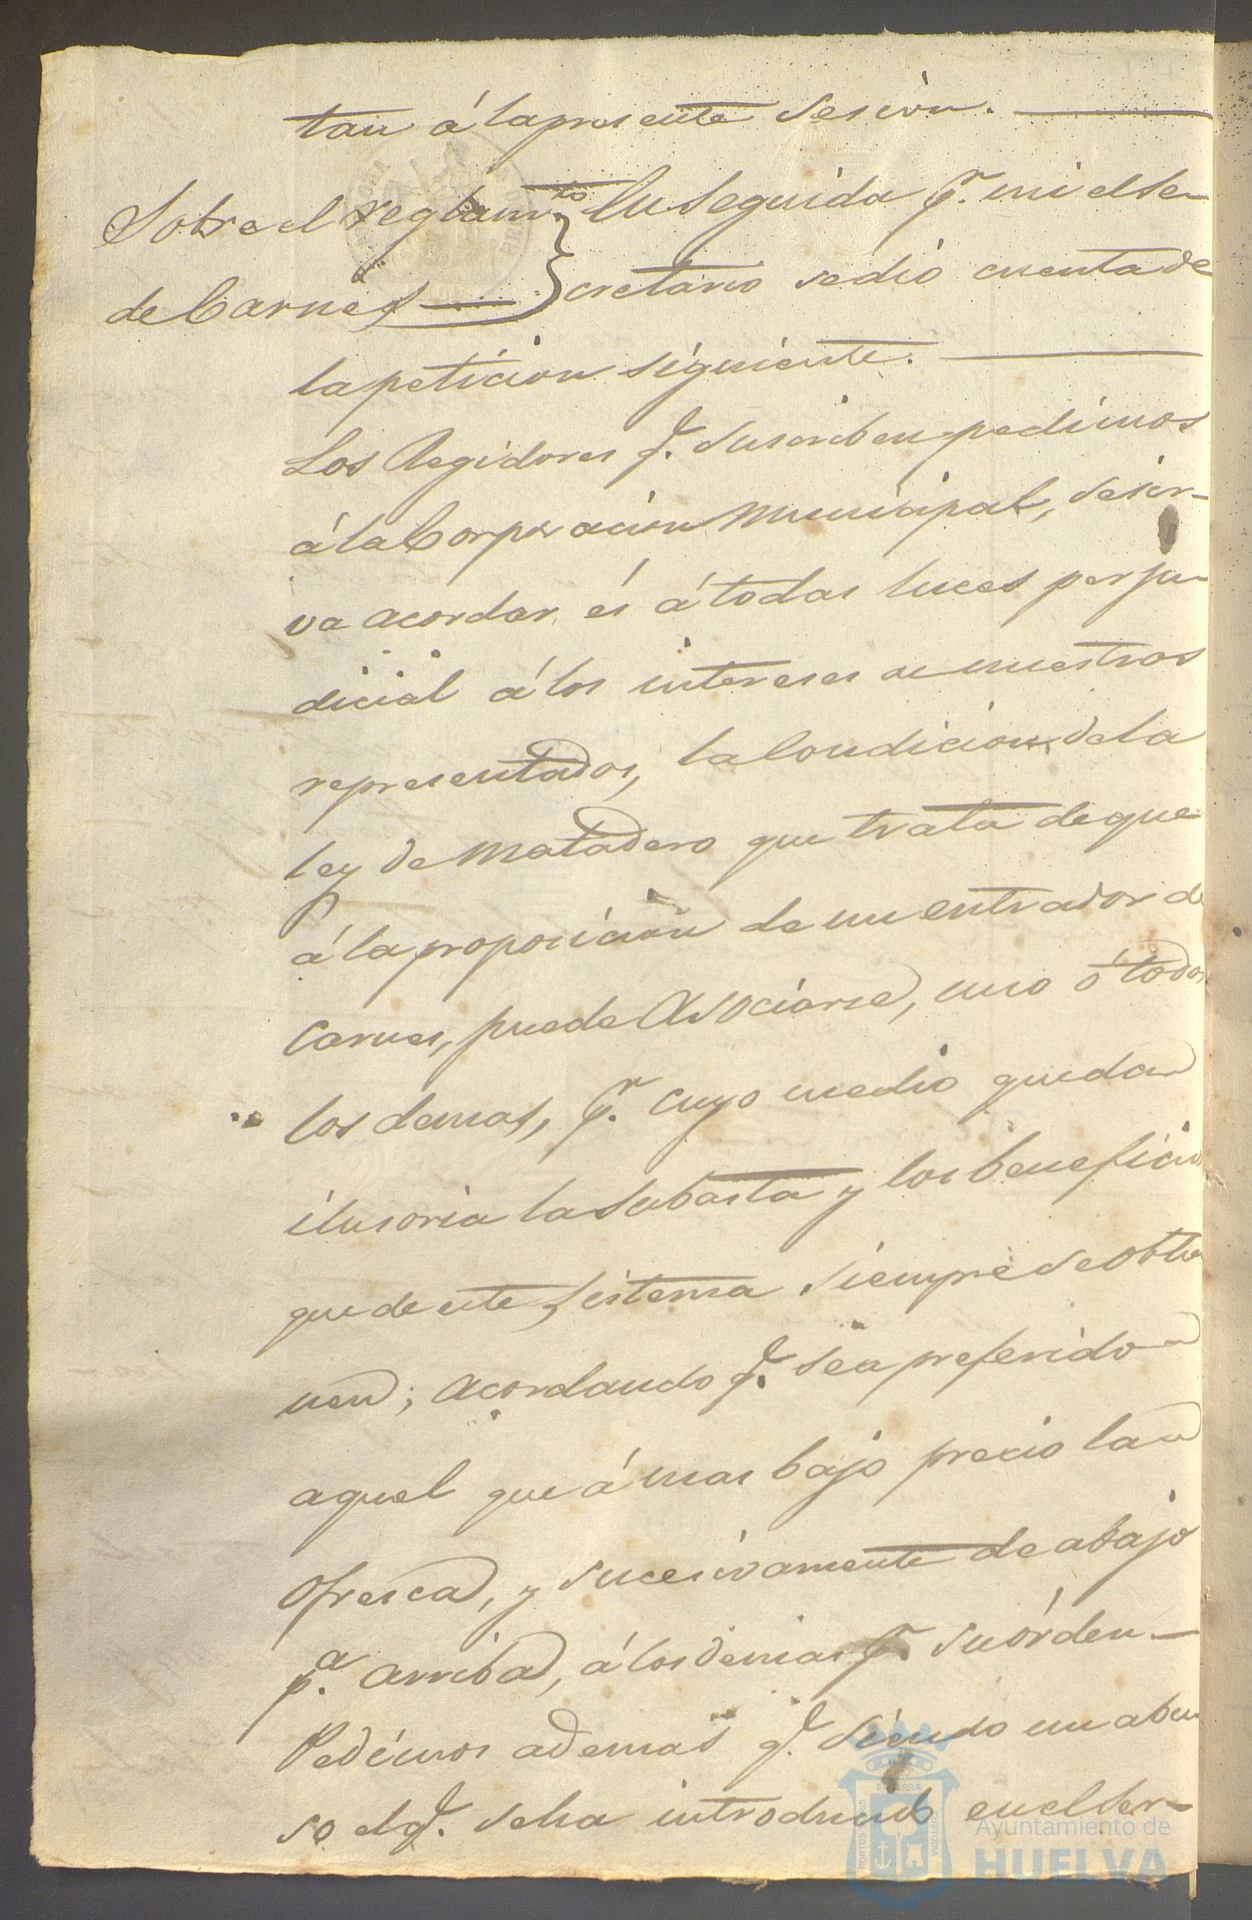 tan á la presente sesion.
Sobre el reglam.to
de Carnes
En seguida p.r mi el Se-
cretario se dió cuenta de
la peticion siguiente.
Los Regidores q.e suscriben pedimos
á la Corporacion Municipal, se sir-
va acordar es á todas luces perju-
dicial á los intereses de nuestros
representados, la Condicion de la
ley de Matadero que trata de que
á la proposicion de un entrador de
carnes, puede Asociarse, uno ó todos
los demas, p.r cuyo medio queda
ilusoria la Subasta y los beneficios
que de este Sistema siempre se obtie
nen; acordando q.e sea preferido
aquel que á mas bajo precio la
ofresca, y sucesivamente de abajo
p.a arriba, á los demas p.r su órden.
Pedimos ademas q.e siendo un abu
so el q.e se ha introducido en el Ser-
Ayuntamiento de
HUELVA